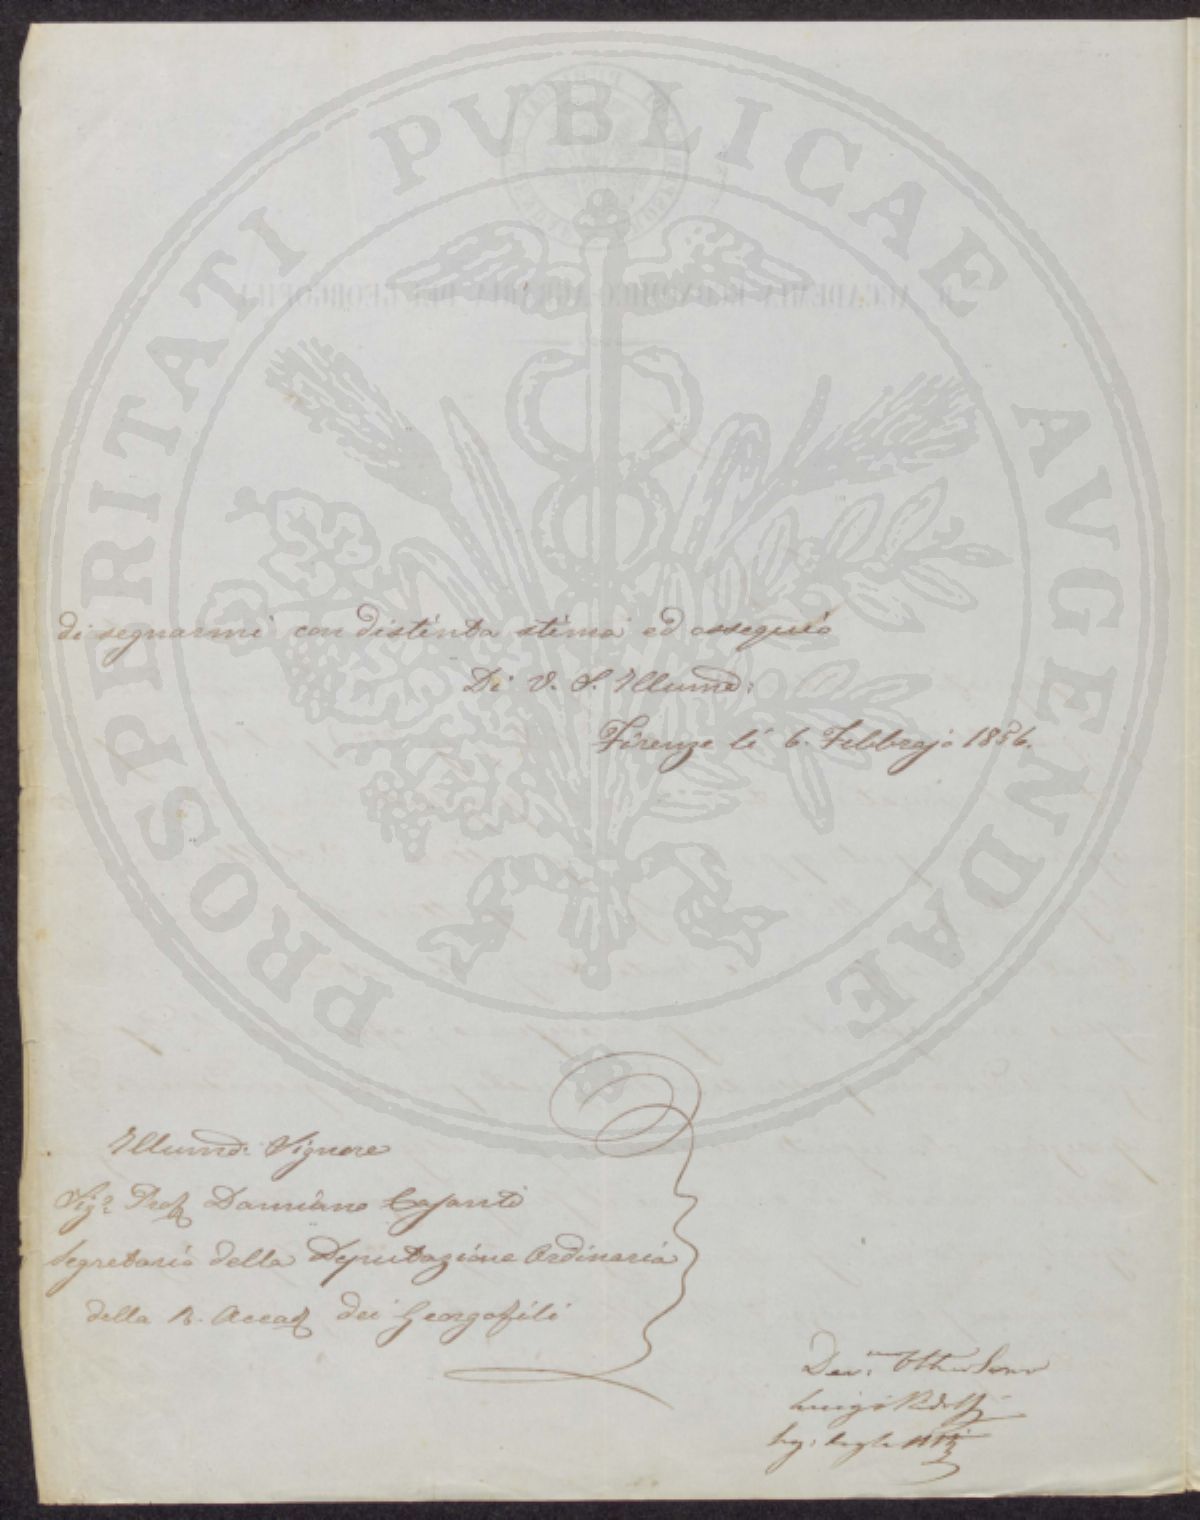 PROSPERITATI PVBLICAE AVGENDAE
R. ACCADEMIA ECONOMICO-AGRARIA DEI GEORGOFILI
di segnarmi con distinta stima ed ossequio
Di V. S. Illumã:
Firenze li 6. Febbrajo 1856.
Illumã: Signore
Sigr Prof. Damiano Casanti
Segretario della Deputazione Ordinaria
della R. Accad. dei Georgofili
Dev.mo Obb.
Luigi Ridolfi
Seg: degli Atti